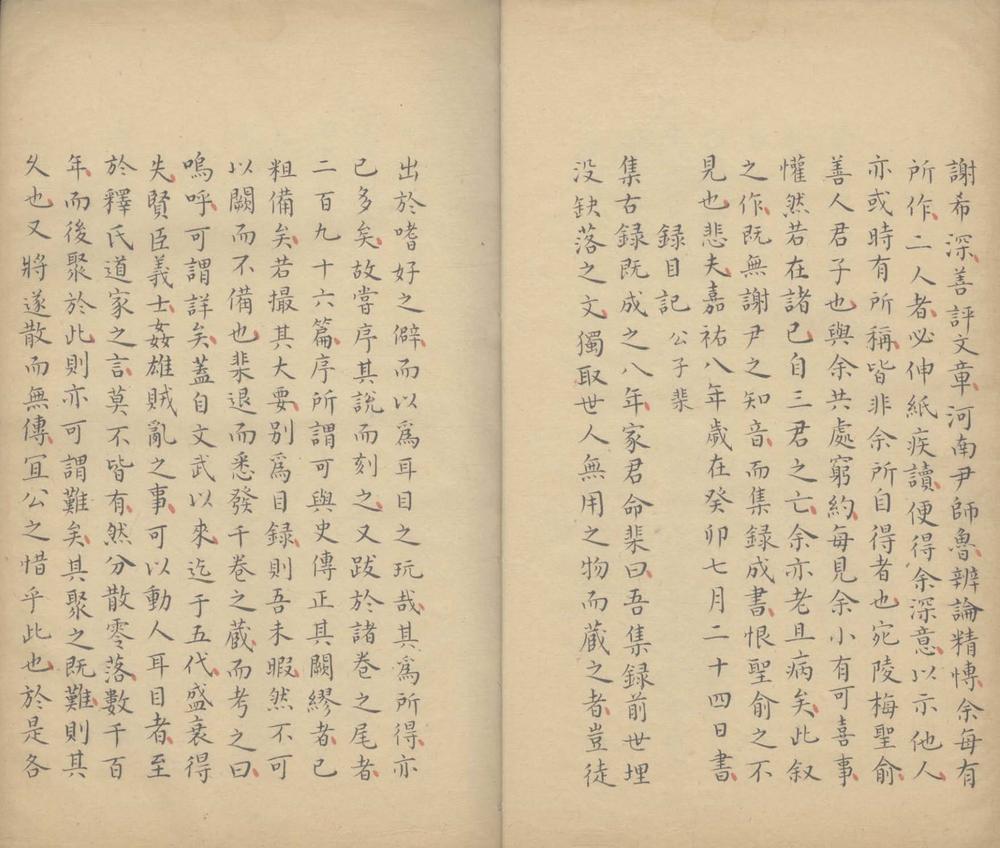 謝希深善評文章河南尹師魯辨論精慱余每有
所作二人者必伸紙疾讀便得余深意以示他人
亦或時有所稱皆非余所自得者也宛陵梅聖俞
善人君子也與余共處窮約每見余小有可喜事
懽然若在諸已自三君之亡余亦老且病矣此叙
之作既無謝尹之知音而集録成書恨聖俞之不
見也悲夫嘉祐八年歲在癸卯七月二十四日書
録目記 公子棐
集古録既成之八年家君命棐曰吾集録前世埋
没缺落之文獨取世人無用之物而蔵之者豈徒
出於嗜好之僻而以爲耳目之玩哉其爲所得亦
已多矣故嘗序其說而刻之又跋於諸卷之尾者
二百九十六篇序所謂可與史傳正其闕繆者已
粗備矣若撮其大要别爲目録則吾未暇然不可
以闕而不備也棐退而悉發千巻之蔵而考之曰
嗚呼可謂詳矣蓋自文武以來迄于五代盛衰得
失賢臣義士姦雄賊亂之事可以動人耳目者至
於釋氏道家之言莫不皆有然分散零落數千百
年而後聚於此則亦可謂難矣其聚之既難則其
乆也又將遂散而無傳宜公之惜乎此也於是各